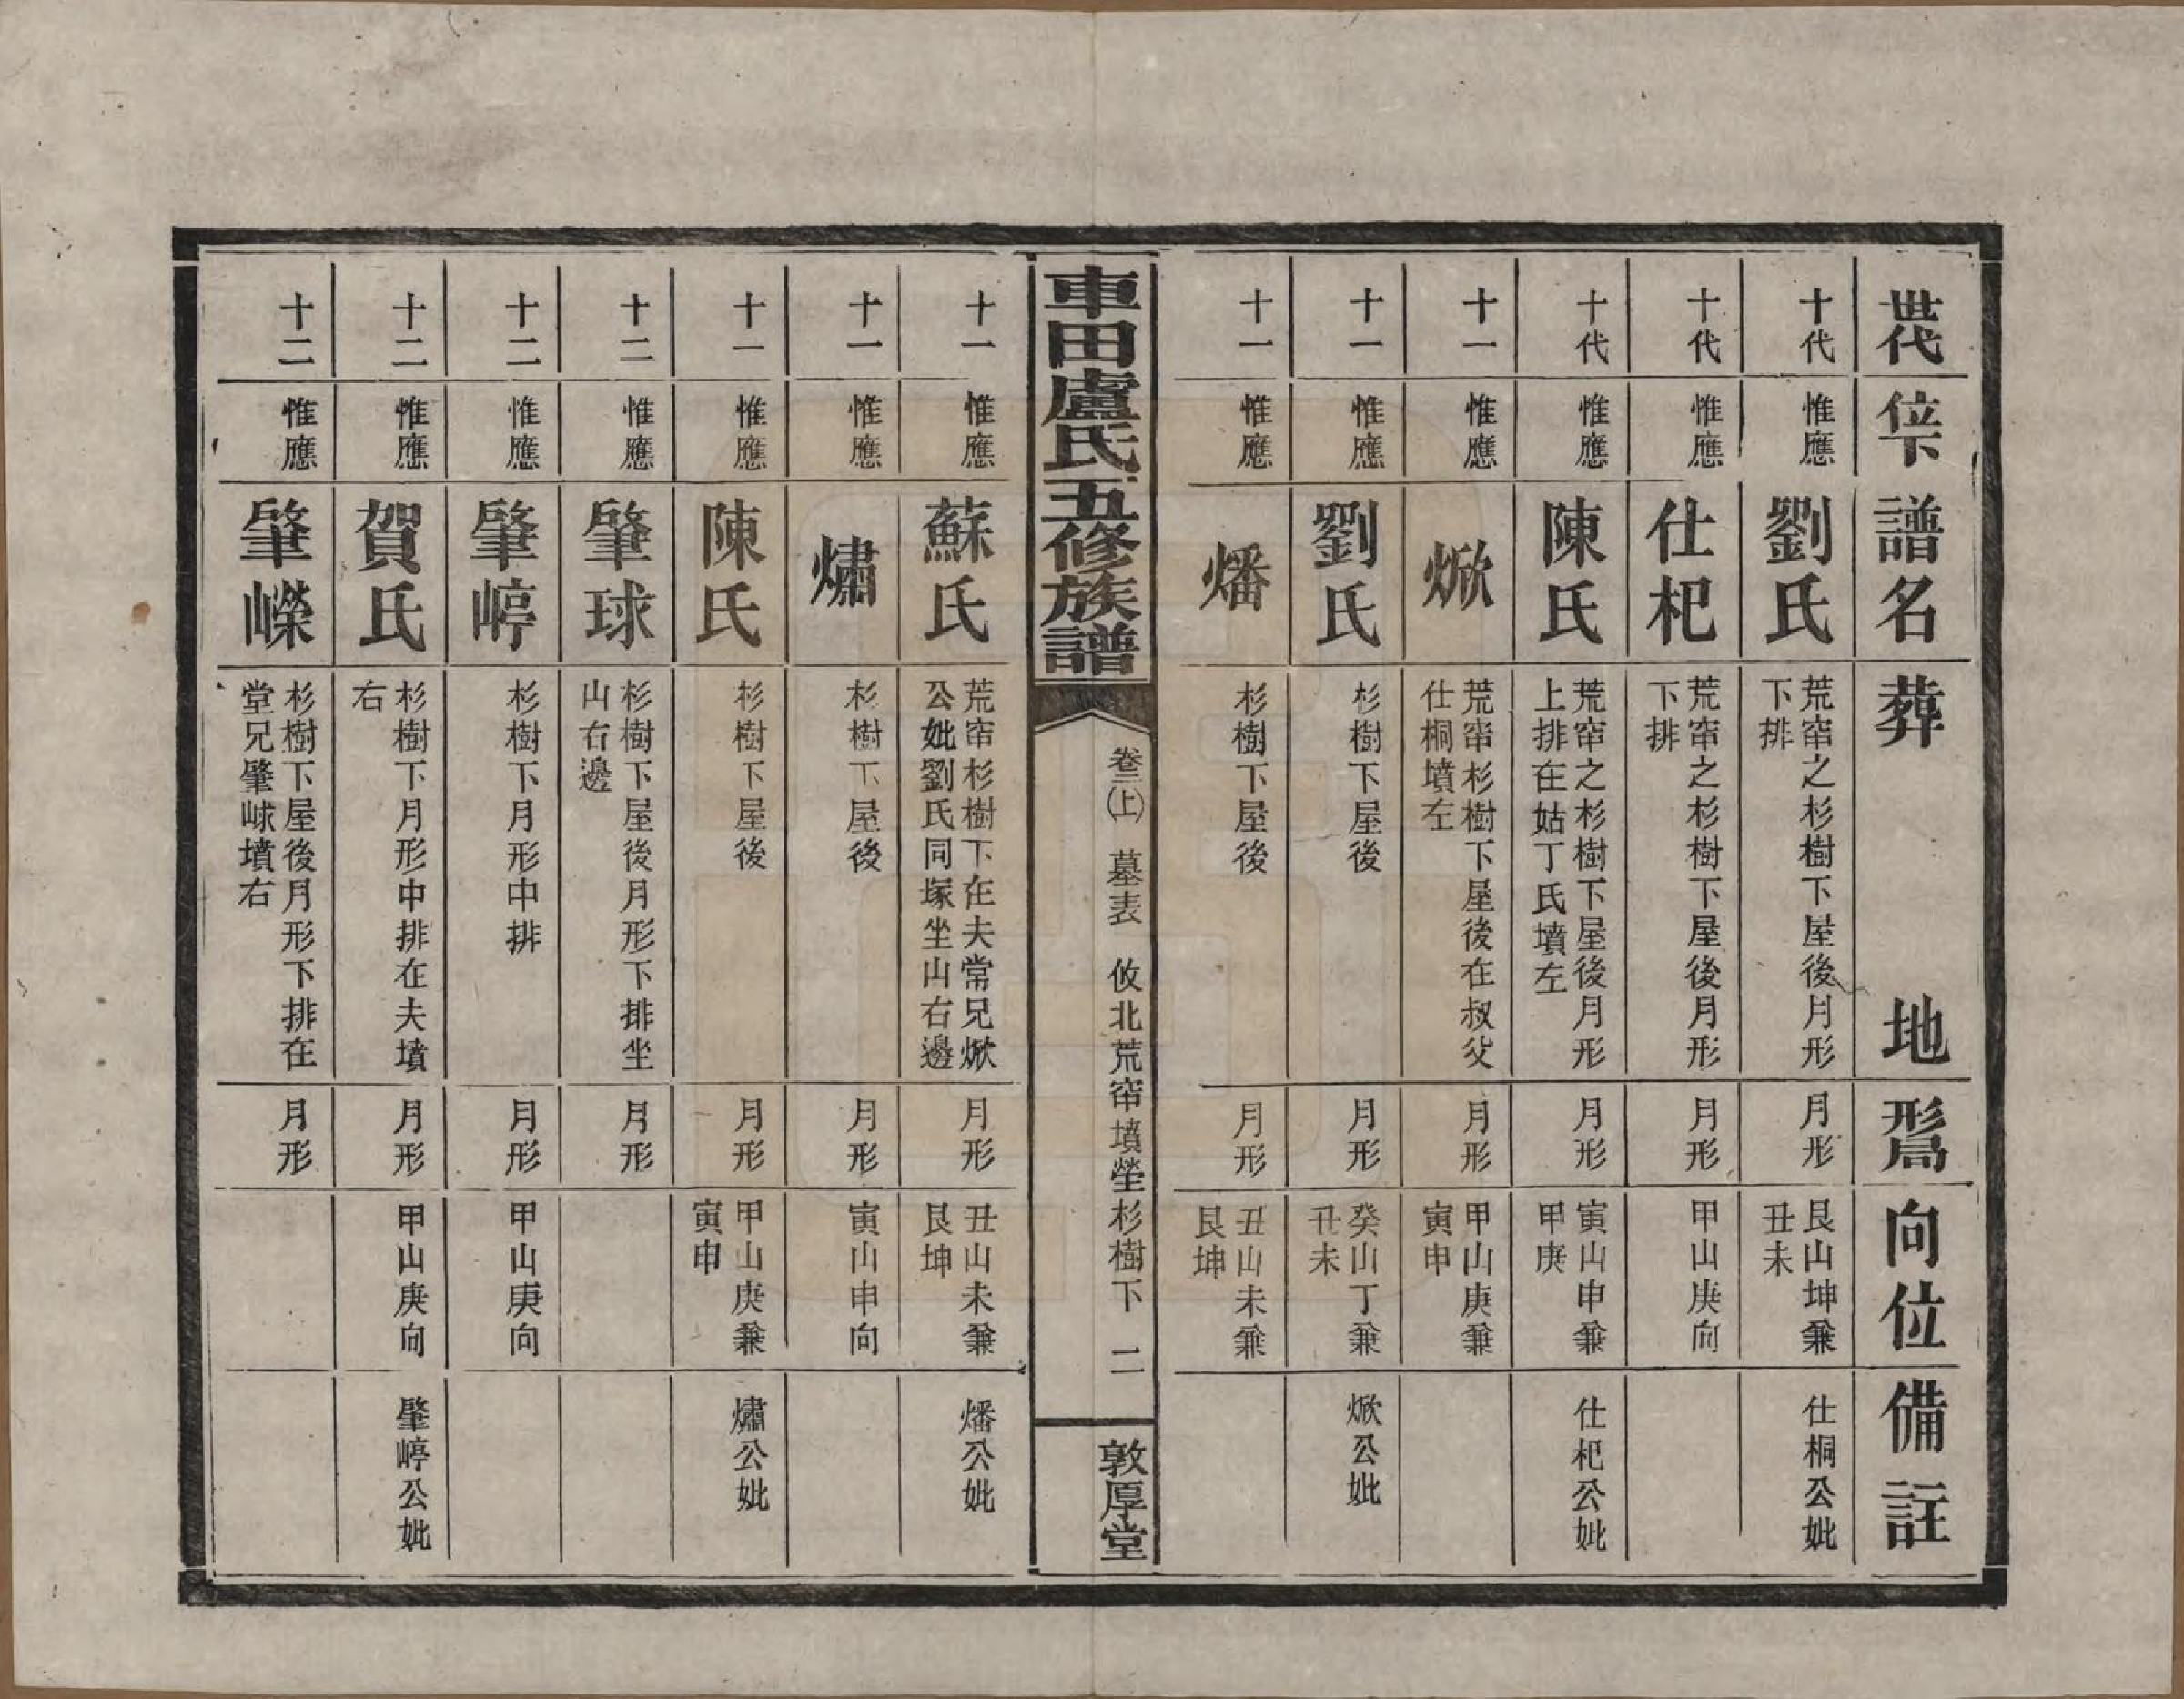 世代 倅下 譜名 葬地 形爲 向位 備註
十代 惟應 劉氏 荒窂之杉樹下屋後月形下排 月形 艮山坤兼丑未 仕桐公妣
十代 惟應 仕杞 荒窂之杉樹下屋後月形下排 月形 甲山庚向
十代 惟應 陳氏 荒窂之杉樹下屋後月形上排在姑丁氏墳左 月形 寅山申兼甲庚 仕杞公妣
十一 惟應 焮 荒窂杉樹下屋後在叔父仕桐墳左 月形 甲山庚兼寅申
十一 惟應 劉氏 杉樹下屋後 月形 癸山丁兼丑未 焮公妣
十一 惟應 燔 杉樹下屋後 月形 丑山未兼艮坤
車田盧氏五修族譜 卷二(上) 墓表 攸北荒窂墳塋杉樹下 二 敦厚堂
十一 惟應 蘇氏 荒窂杉樹下在夫常兄焮公妣劉氏同塚坐山右邊 月形 丑山未兼艮坤 燔公妣
十一 惟應 熽 杉樹下屋後 月形 寅山申向
十一 惟應 陳氏 杉樹下屋後 月形 甲山庚兼寅申 熽公妣
十二 惟應 肇球 杉樹下屋後月形下排坐山右邊 月形
十二 惟應 肇崞 杉樹下月形中排 月形 甲山庚向
十二 惟應 賀氏 杉樹下月形中排在夫墳右 月形 甲山庚向 肇崞公妣
十二 惟應 肇嶸 杉樹下屋後月形下排在堂兄肇崍墳右 月形